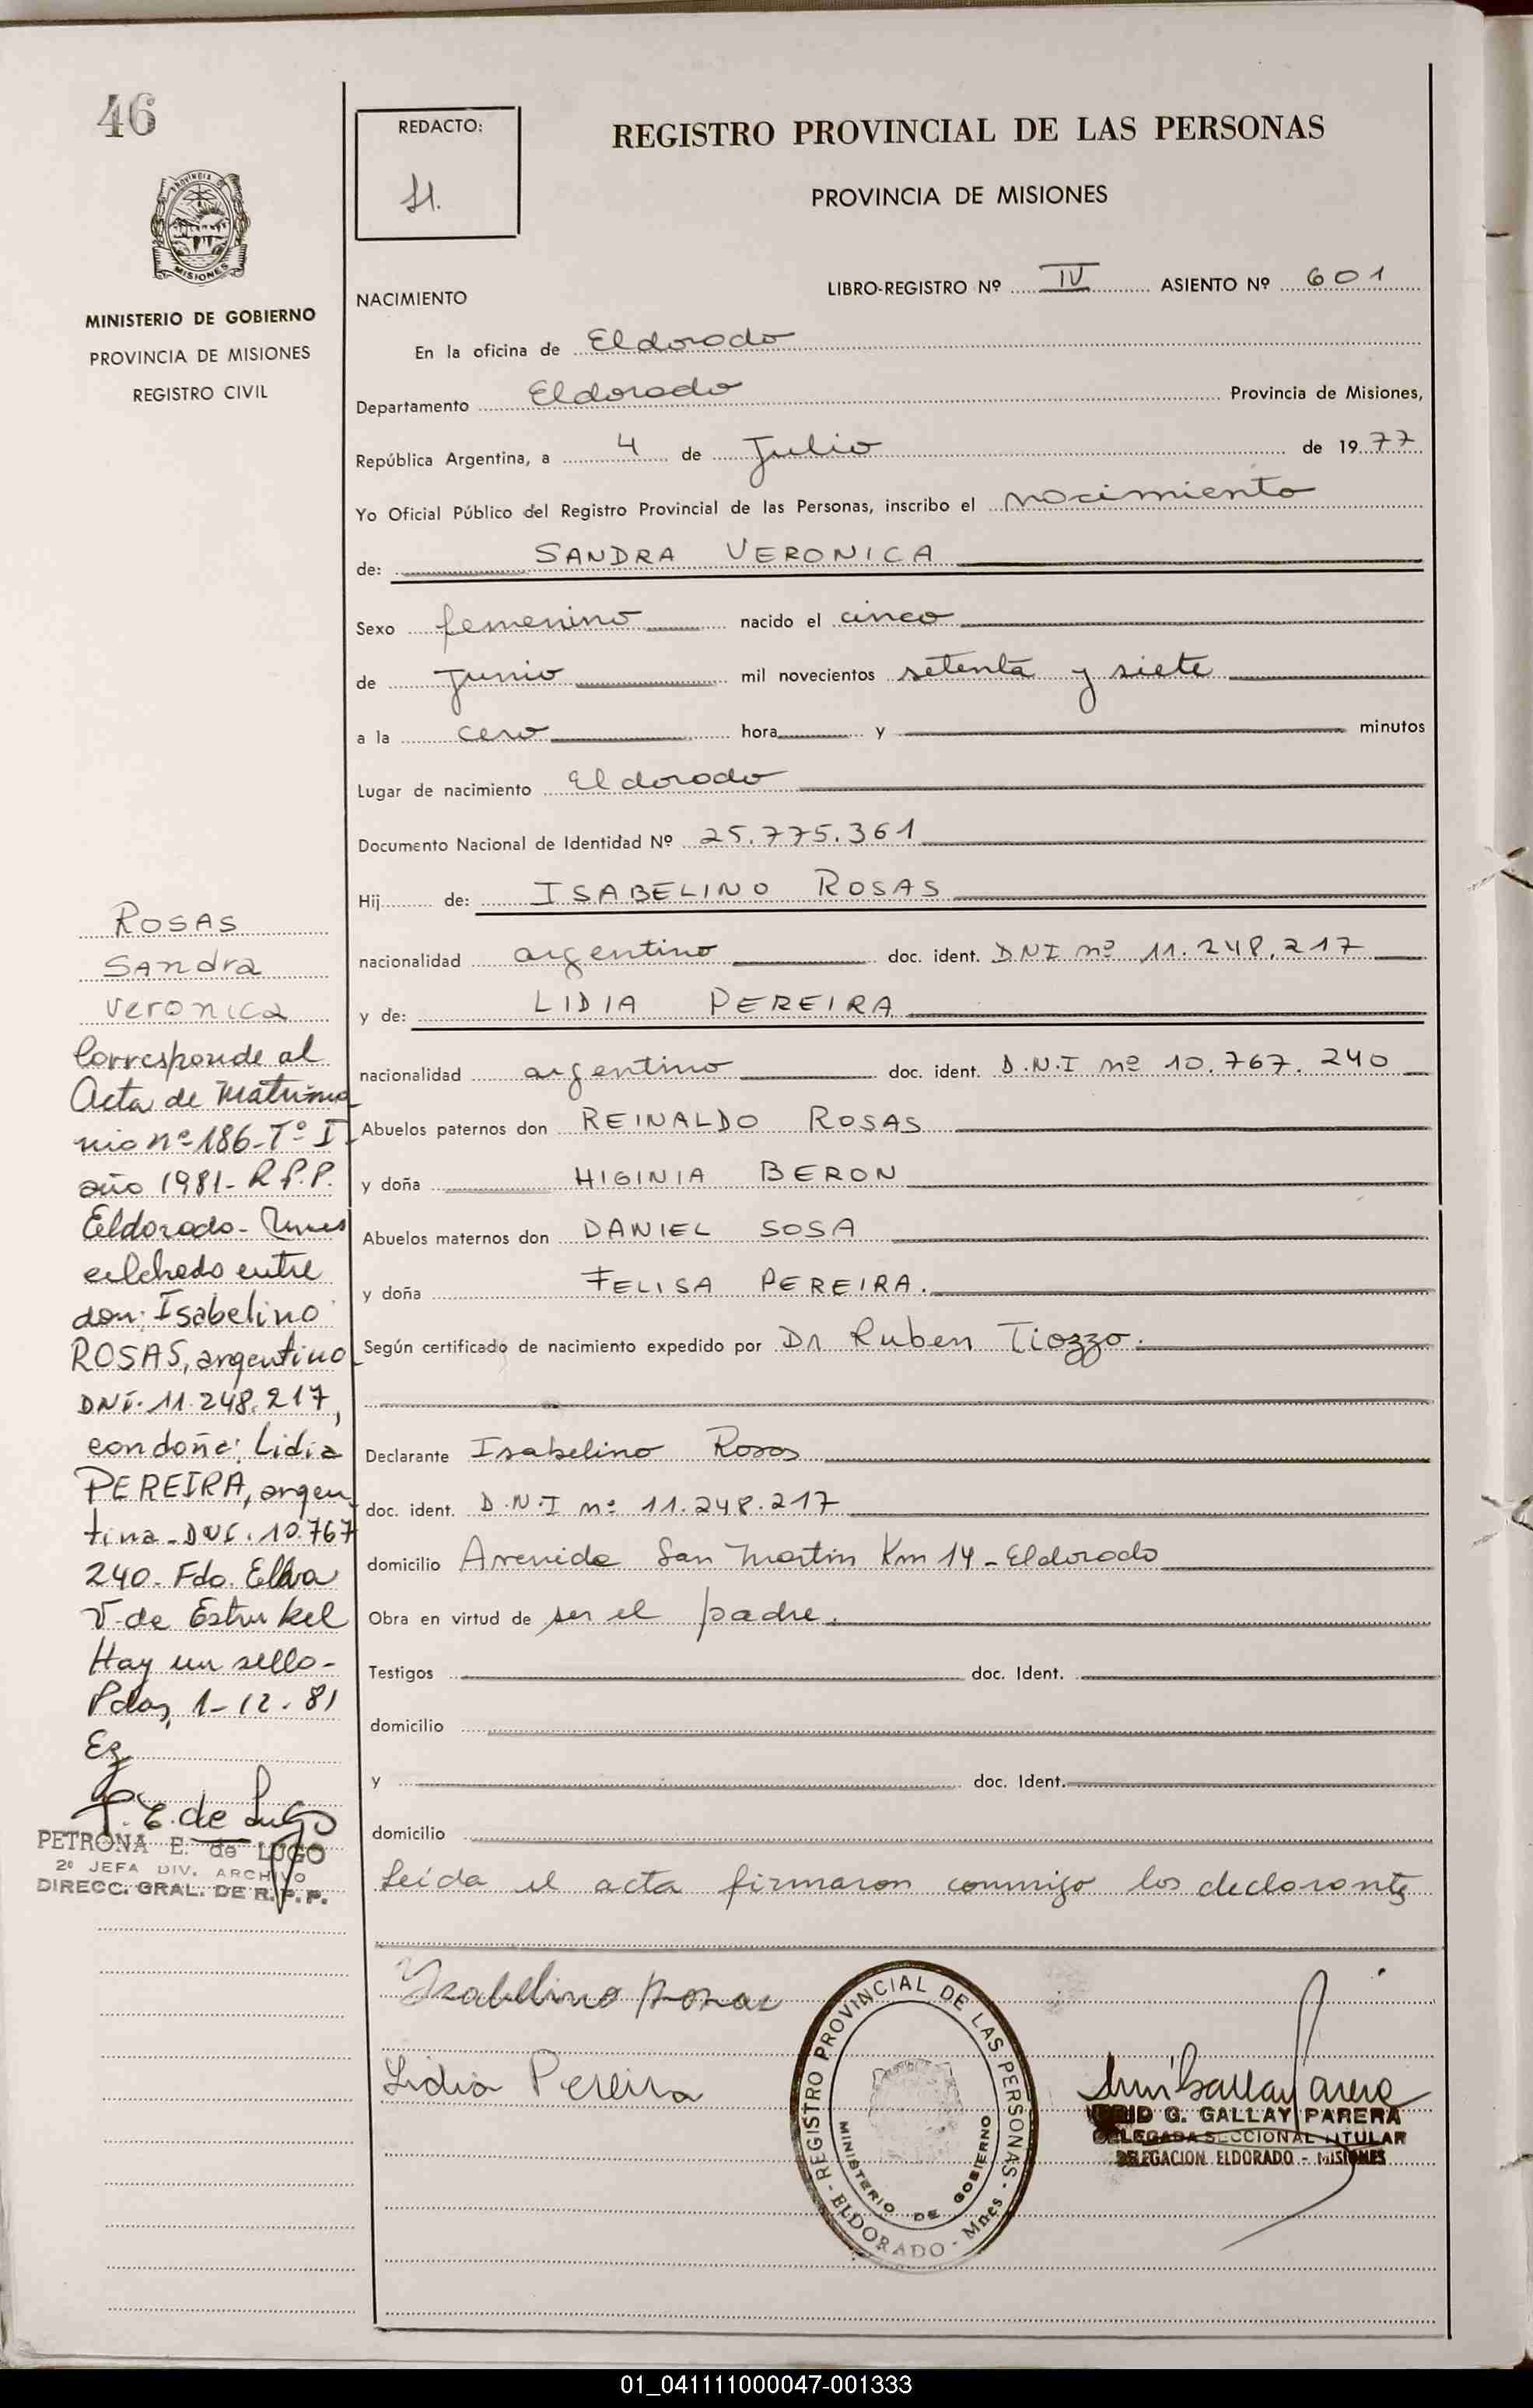 46
PROVINCIA D
MISIONES
MINISTERIO DE GOBIERNO
PROVINCIA DE MISIONES
REGISTRO CIVIL
REDACTO:
REGISTRO PROVINCIAL DE LAS PERSONAS
PROVINCIA DE MISIONES
LIBRO-REGISTRO Nº IV ASIENTO Nº 601
NACIMIENTO
En la oficina de Eldorado
Departamento Eldorado Provincia de Misiones,
República Argentina, a 4 de Julio de 1977
Yo Oficial Público del Registro Provincial de las Personas, inscribo el nacimiento
de: SANDRA VERONICA
Sexo femenino nacido el cinco
de Junio mil novecientos setenta y siete
a la cero hora y minutos
Lugar de nacimiento Eldorado
Documento Nacional de Identidad Nº 25.775.361
Hij de: ISABELINO ROSAS
nacionalidad argentino doc. ident. DNI nº 11.248.217
y de: LIDIA PEREIRA
nacionalidad argentino doc. ident. D.N.I nº 10.767.240
Abuelos paternos don REINALDO ROSAS
y doña HIGINIA BERON
Abuelos maternos don DANIEL SOSA
y doña FELISA PEREIRA.
Según certificado de nacimiento expedido por Dr Ruben Tiozzo.
Declarante Isabelino Rosas
doc. ident. D.N.I nº 11.248.217
domicilio Avenida San Martin Km 14 - Eldorado
Obra en virtud de ser el padre.
Testigos doc. Ident.
domicilio
y doc. Ident.
domicilio
Leida el acta firmaron conmigo los declarantes
Ysabelino Rosas
Lidia Pereira
REGISTRO PROVINCIAL DE LAS PERSONAS - ELDORADO - Mnes -
MINISTERIO DE GOBIERNO
G. GALLAY PARERA
DELEGADA SECCIONAL TITULAR
DELEGACION ELDORADO - MISIONES
ROSAS
Sandra
Veronica
Corresponde al
Acta de Matrimo
nio nº 186-Tº I
año 1981- R.P.P.
Eldorado- Mnes
celebrado entre
don: Isabelino
ROSAS, argentino
DNI. 11.248.217,
con doña: Lidia
PEREIRA, argen
tina - DNI. 10.767
240. Fdo. Elba
V. de Estrukel
Hay un sello-
Pdas, 1-12-81
P. E. de Lugo
PETRONA E. de LUGO
2º JEFA DIV. ARCHIVO
DIRECC. GRAL. DE R.P.P.
01_041111000047-001333